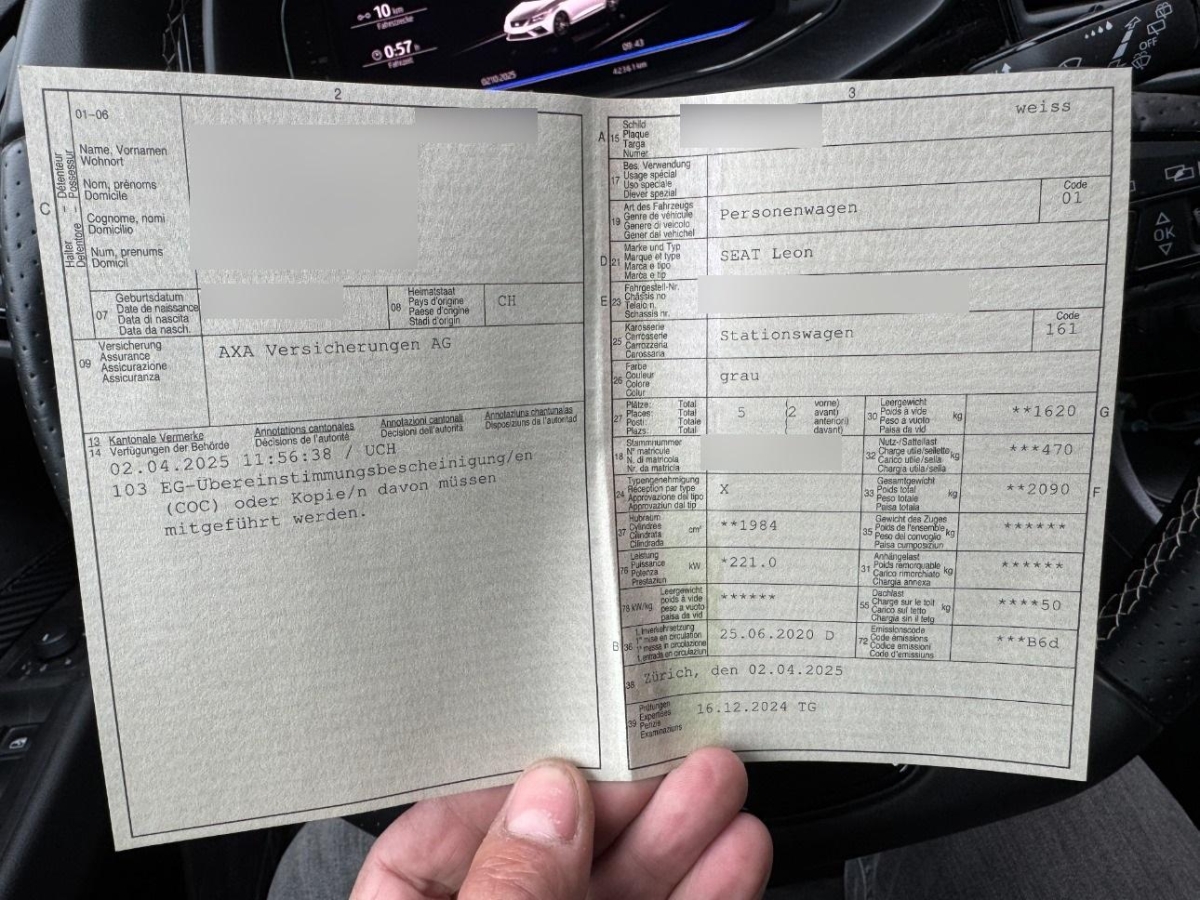 10 km
Fahrstrecke
0:57 h
Fahrzeit
09:43
02.10.2025
OFF
OK
2
01-06
Name, Vornamen
Wohnort
Nom, prénoms
Domicile
Cognome, nomi
Domicilio
Num, prenums
Domicil
C
Halter
Détenteur
Detentore
Possessur
07
Geburtsdatum
Date de naissance
Data di nascita
Data da nasch.
08
Heimatstaat
Pays d'origine
Paese d'origine
Stadi d'origin
CH
09
Versicherung
Assurance
Assicurazione
Assicuranza
AXA Versicherungen AG
13 Kantonale Vermerke Annotations cantonales Annotazioni cantonali Annotaziuns chantunalas
14 Verfügungen der Behörde Décisions de l'autorité Decisioni dell'autorità Disposiziuns da l'autoritad
02.04.2025 11:56:38 / UCH
103 EG-Übereinstimmungsbescheinigung/en
(COC) oder Kopie/n davon müssen
mitgeführt werden.
3
A
15
Schild
Plaque
Targa
Numer
weiss
17
Bes. Verwendung
Usage spécial
Uso speciale
Diever spezial
19
Art des Fahrzeugs
Genre de véhicule
Genere di veicolo
Gener dal vehichel
Personenwagen
Code
01
D
21
Marke und Typ
Marque et type
Marca e tipo
Marca e tip
SEAT Leon
E
23
Fahrgestell-Nr.
Châssis no
Telaio n.
Schassis nr.
25
Karosserie
Carrosserie
Carrozzeria
Carossaria
Stationswagen
Code
161
26
Farbe
Couleur
Colore
Colur
grau
27
Plätze: Total
Places: Total
Posti: Totale
Plazs: Totale
5
(2
vorne)
avant)
anteriori)
davant)
30
Leergewicht
Poids à vide
Peso a vuoto
Paisa da vid
kg
**1620
G
18
Stammnummer
N° matricule
N. di matricola
Nr. da matricla
32
Nutz-/Sattellast
Charge utile/sellette
Carico utile/sella
Chargia utila/sella
kg
***470
24
Typengenehmigung
Réception par type
Approvazione del tipo
Approvaziun dal tip
X
33
Gesamtgewicht
Poids total
Peso totale
Paisa totala
kg
**2090
F
37
Hubraum
Cylindrée
Cilindrata
Cilindrada
cm³
**1984
35
Gewicht des Zuges
Poids de l'ensemble
Peso del convoglio
Paisa cumposiziun
kg
******
76
Leistung
Puissance
Potenza
Prestaziun
kW
*221.0
31
Anhängelast
Poids remorquable
Carico rimorchiato
Chargia annexa
kg
******
78 kW/kg
Leergewicht
poids à vide
peso a vuoto
paisa da vid
******
55
Dachlast
Charge sur le toit
Carico sul tetto
Chargia sin il tetg
kg
****50
B
36
1. Inverkehrsetzung
1re mise en circulation
1a messa in circolazione
1. entrada en circulaziun
25.06.2020 D
72
Emissionscode
Code émissions
Codice emissioni
Code d'emissiuns
***B6d
38
Zürich, den 02.04.2025
39
Prüfungen
Expertises
Perizie
Examinaziuns
16.12.2024 TG